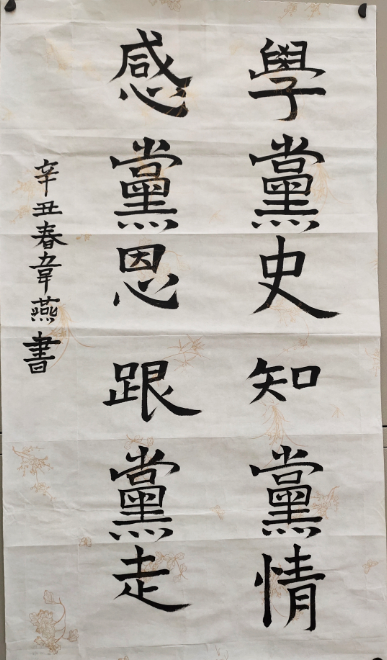 學黨史知黨情
感黨恩跟黨走
辛丑春韋燕書